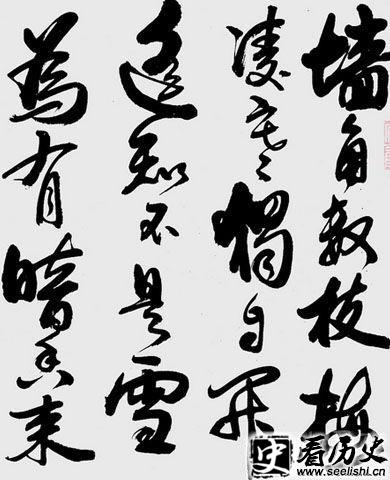 墙角数枝梅
凌寒獨自开
遥知不是雪
為有暗香来
史 看历史
www.seelishi.cn